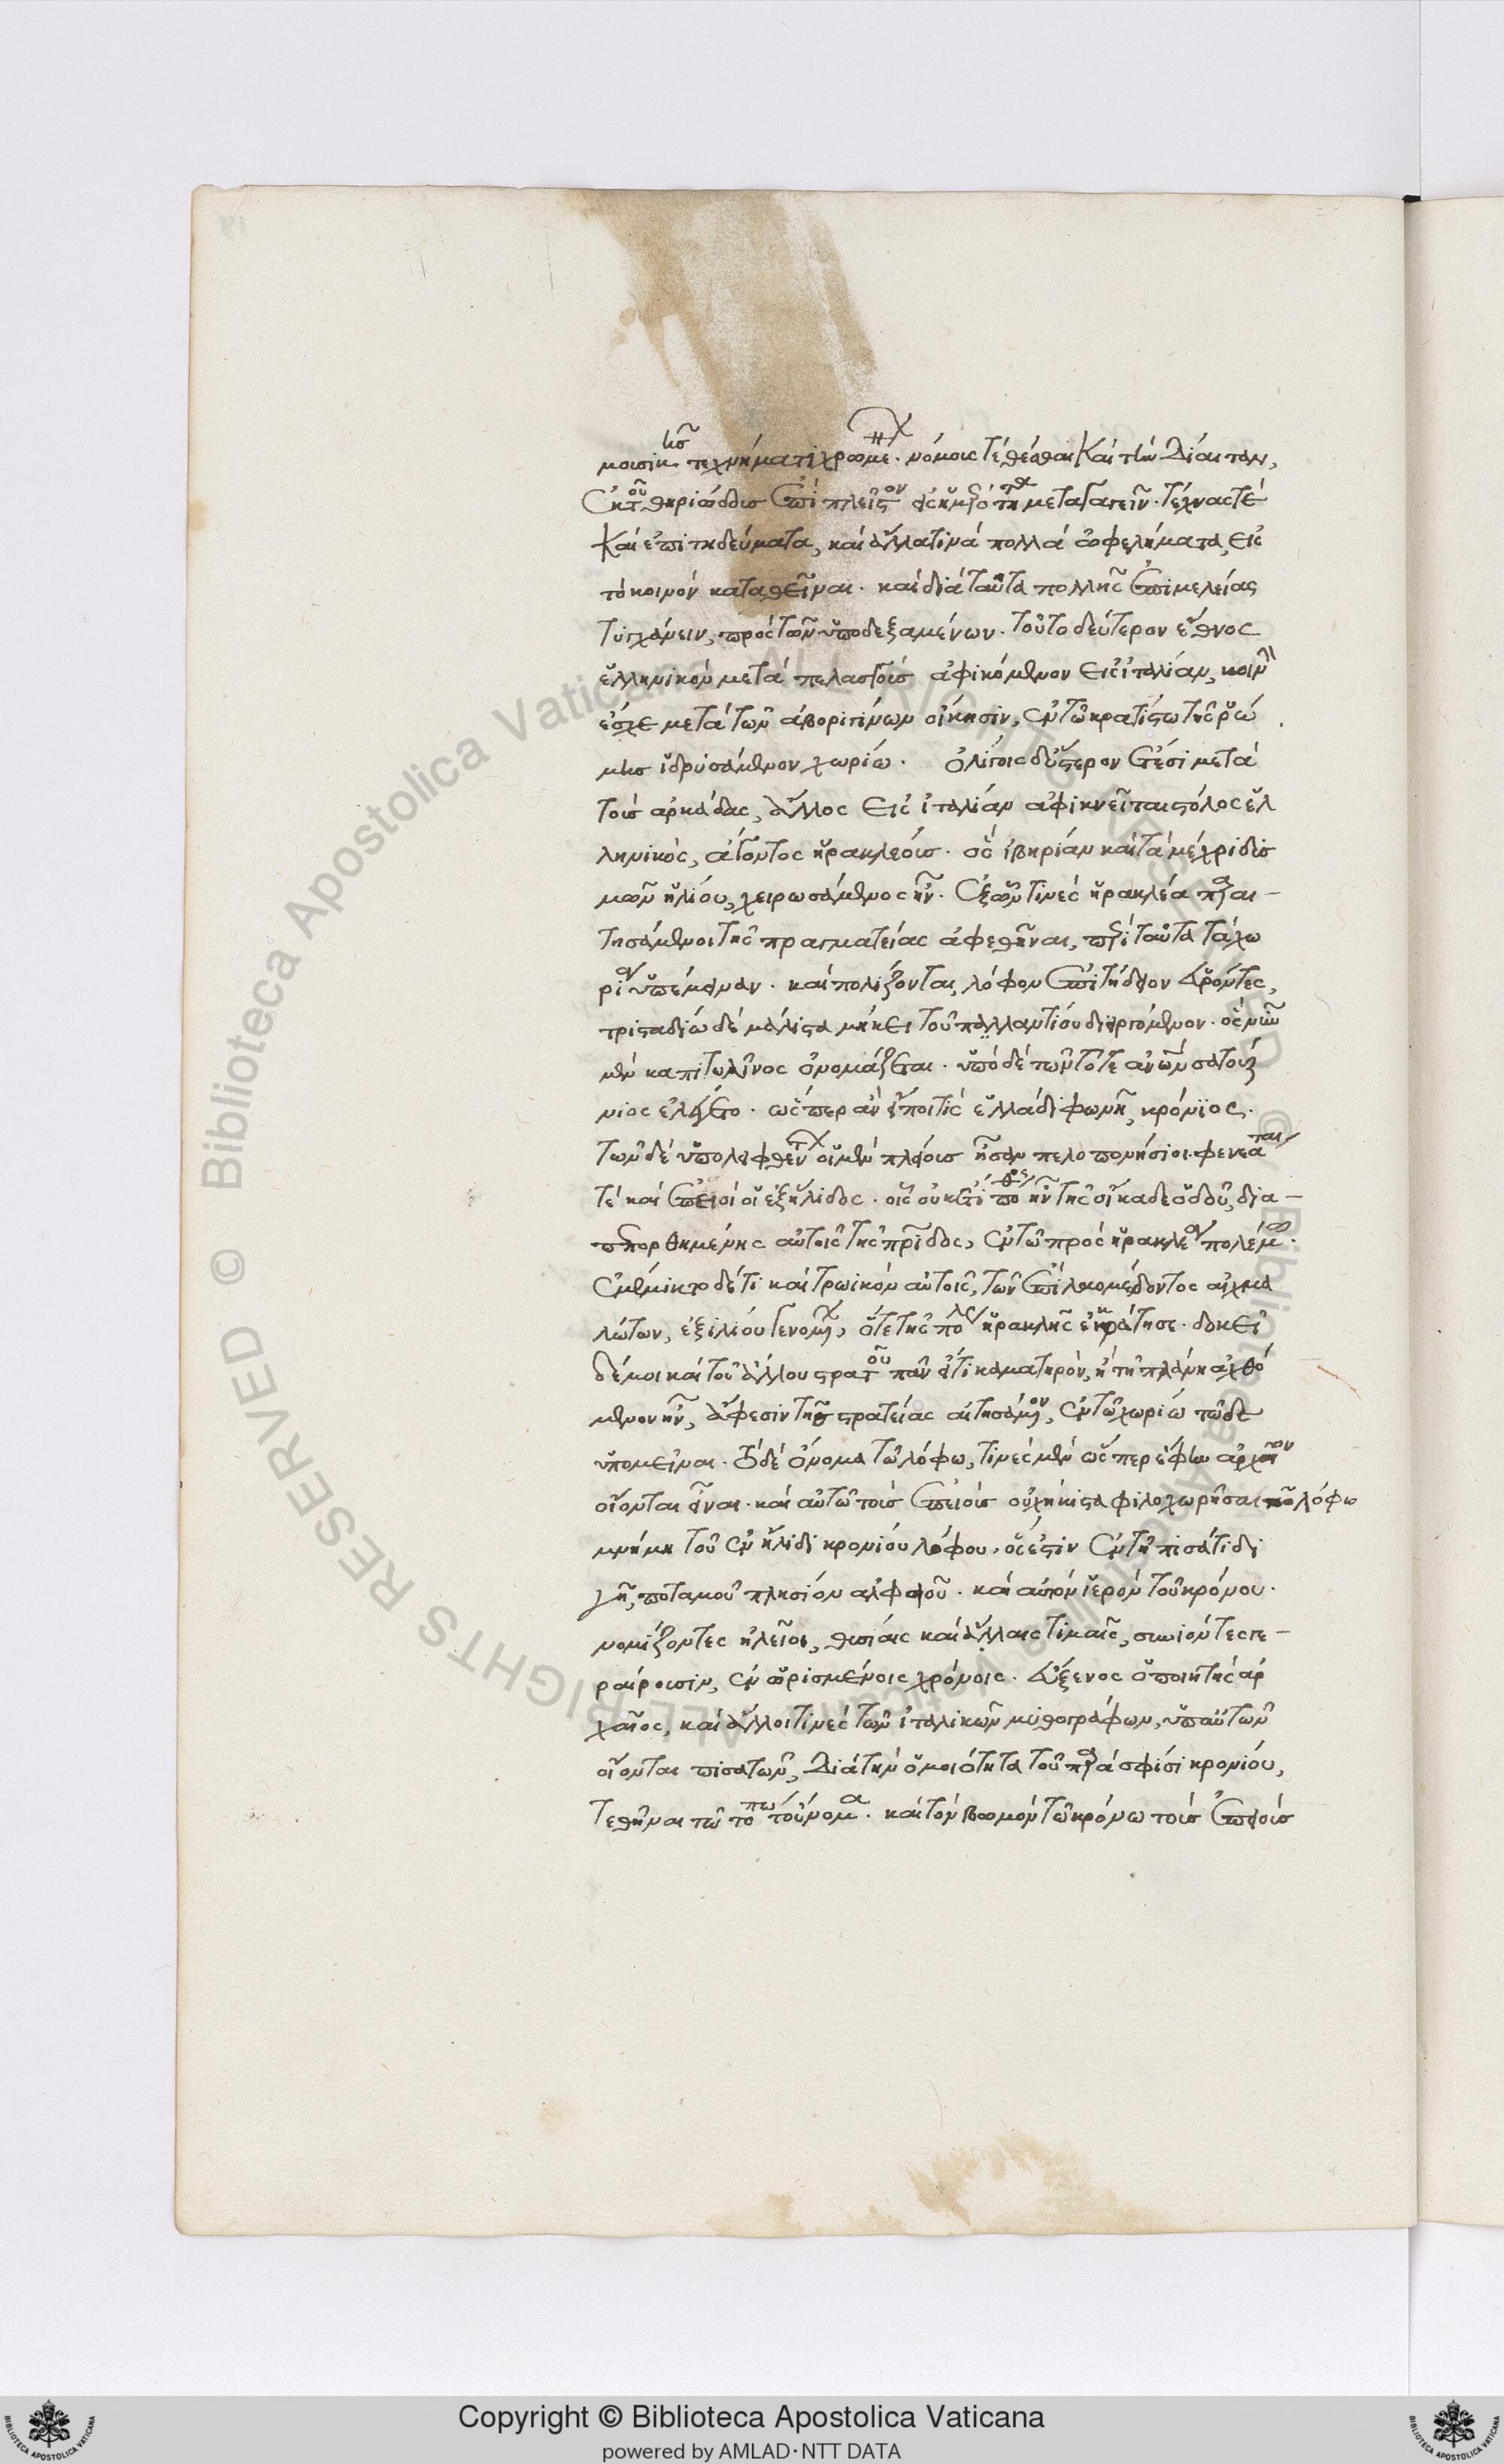 μουσικῆς τεχνήματι χρωμένης. νόμους τὲ θέσθαι καὶ τὴν δίαιταν,
ἐκ τοῦ θηριώδους ἐπὶ πλεῖστον εἰς ἡμερότητα μεταγαγεῖν. τέχνας τὲ
καὶ ἐπιτηδεύματα, καὶ ἄλλα τινὰ πολλὰ ὠφελήματα, εἰς
τὸ κοινὸν καταθεῖναι. καὶ διὰ ταῦτα πολλῆς ἐπιμελείας
τυγχάνειν, πρὸς τῶν ὑποδεξαμένων. τοῦτο δεύτερον ἔθνος
ἑλληνικὸν μετὰ πελασγοὺς ἀφικόμενον εἰς ἰταλίαν, κοινὴν
ἔσχε μετὰ τῶν ἀβοριγίνων οἴκησιν, ἐν τῷ κρατίστῳ τῆς ῥώ
μης ἱδρυσάμενον χωρίῳ. ὀλίγοις δ' ὕστερον ἔτεσι μετὰ
τοὺς ἀρκάδας, ἄλλος εἰς ἰταλίαν ἀφικνεῖται στόλος ἑλ
ληνικὸς, ἄγοντος ἡρακλέους. ὃς ἰβηρίαν καὶ τὰ μέχρι δυς
μῶν ἡλίου, χειρωσάμενος ἧκεν. ἐξ ὧν τινὲς ἡρακλέα παραι-
τησάμενοι τῆς πραγματείας ἀφεθῆναι, περὶ ταῦτα τὰ χω
ρία ὑπέμειναν. καὶ πολίζονται, λόφον ἐπιτήδειον εὑρόντες,
τρισταδίῳ δὲ μάλιστα μήκει τοῦ παλλαντίου διειργόμενον. ὃς νῦν
μὲν καπιτωλῖνος ὀνομάζεται. ὑπὸ δὲ τῶν τότε ἀνθρώπων σατουρ
νιος ἐλέγετο. ὥσπερ ἂν εἴποι τὶς ἑλλάδι φωνῇ, κρόνιος.
τῶν δὲ ὑπολειφθέντων οἱ μὲν πλείους ἦσαν πελοπονήσιοι. φενεᾶται
τὲ καὶ ἐπειοὶ οἱ ἐξ ἤλιδος. οἷς οὐκέτι πόθος ἦν τῆς οἴκαδε ὁδοῦ, δια-
πεπορθημένης αὐτοῖς τῆς πατρίδος, ἐν τῷ πρὸς ἡρακλέα πολέμῳ.
ἐμέμικτο δέ τι καὶ τρωϊκὸν αὐτοῖς, τῶν ἐπὶ λαομέδοντος αἰχμα
λώτων, ἐξ ἰλίου γενομένων, ὅτε τῆς πόλεως ἡρακλῆς ἐκράτησε. δοκεῖ
δέ μοι καὶ τοῦ ἄλλου στρατοῦ πᾶν εἴ τι καματηρὸν, ἢ τῇ πλάνῃ ἀχθό
μενον ἦν, ἄφεσιν τῆς στρατείας αἰτησάμενον, ἐν τῷ χωρίῳ τῷδε
ὑπομεῖναι. τὸ δὲ ὄνομα τῷ λόφῳ, τινὲς μὲν ὥσπερ ἔφην ἀρχαῖον
οἴονται εἶναι. καὶ αὐτῷ τοὺς ἐπειοὺς οὐχ ἥκιστα φιλοχωρῆσαι τῷ λόφῳ
μνήμῃ τοῦ ἐν ἤλιδι κρονίου λόφου. ὅς ἐστιν ἐν τῇ πισάτιδι
γῇ, ποταμοῦ πλησίον ἀλφειοῦ. καὶ αὐτὸν ἱερὸν τοῦ κρόνου.
νομίζοντες ἠλεῖοι, θυσίαις καὶ ἄλλαις τιμαῖς, συνιόντες γε-
ραίρουσιν, ἐν ὡρισμένοις χρόνοις. εὔξενος ὁ ποιητὴς ἀρ
χαῖος, καὶ ἄλλοι τινὲς τῶν ἰταλικῶν μυθογράφων, ὑπ' αὐτῶν
οἴονται πισατῶν, διὰ τὴν ὁμοιότητα τοῦ παρὰ σφίσι κρονίου,
τεθῆναι τῷ τόπῳ τοὔνομα. καὶ τὸν βωμὸν τῷ κρόνῳ τοὺς ἐπειοὺς
Copyright © Biblioteca Apostolica Vaticana
powered by AMLAD·NTT DATA